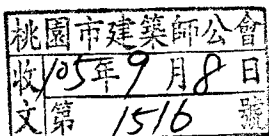 桃園市建築師公會
收105年9月8日
文第1516號